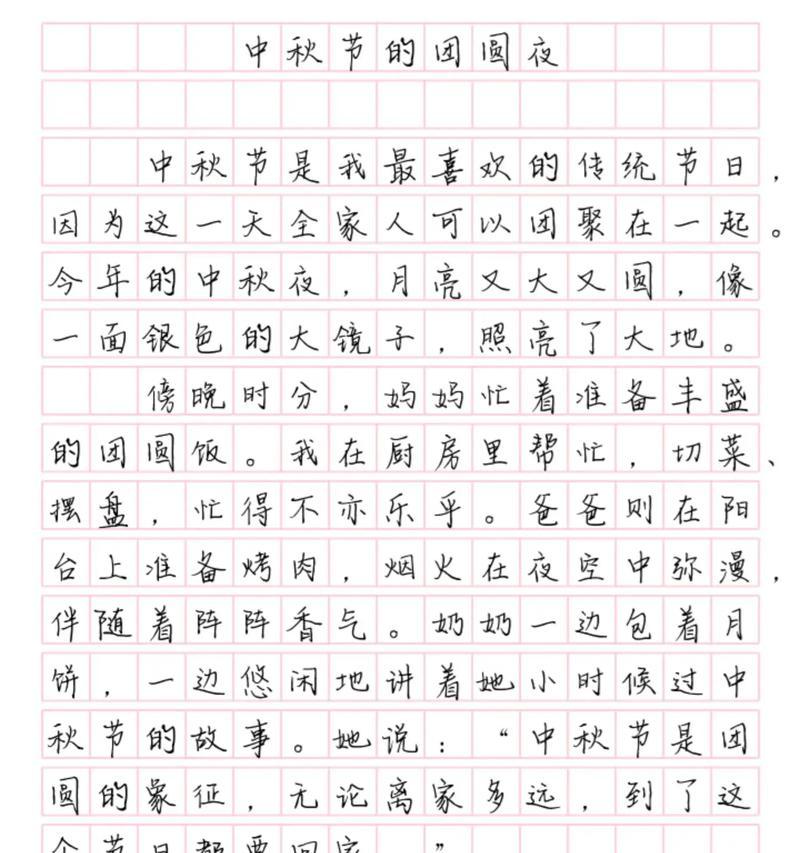 中秋节的团圆夜
中秋节是我最喜欢的传统节日，
因为这一天全家人可以团聚在一起。
今年的中秋夜，月亮又大又圆，像
一面银色的大镜子，照亮了大地。
傍晚时分，妈妈忙着准备丰盛
的团圆饭。我在厨房里帮忙，切菜、
摆盘，忙得不亦乐乎。爸爸则在阳
台上准备烤肉，烟火在夜空中弥漫，
伴随着阵阵香气。奶奶一边包着月
饼，一边悠闲地讲着她小时候过中
秋节的故事。她说：“中秋节是团
圆的象征，无论离家多远，到了这
个节日都要回家。”